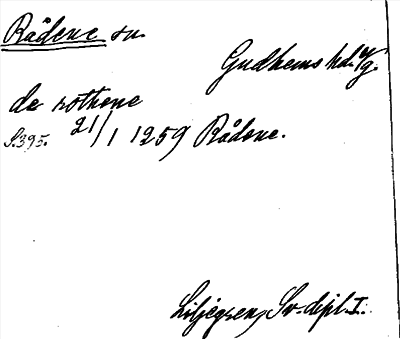 Rådene sn.
Gudhems hd. Vg.
de rothene
S.395. 21/1 1259 Rådene.
Liljegren, Sv. dipl. I.